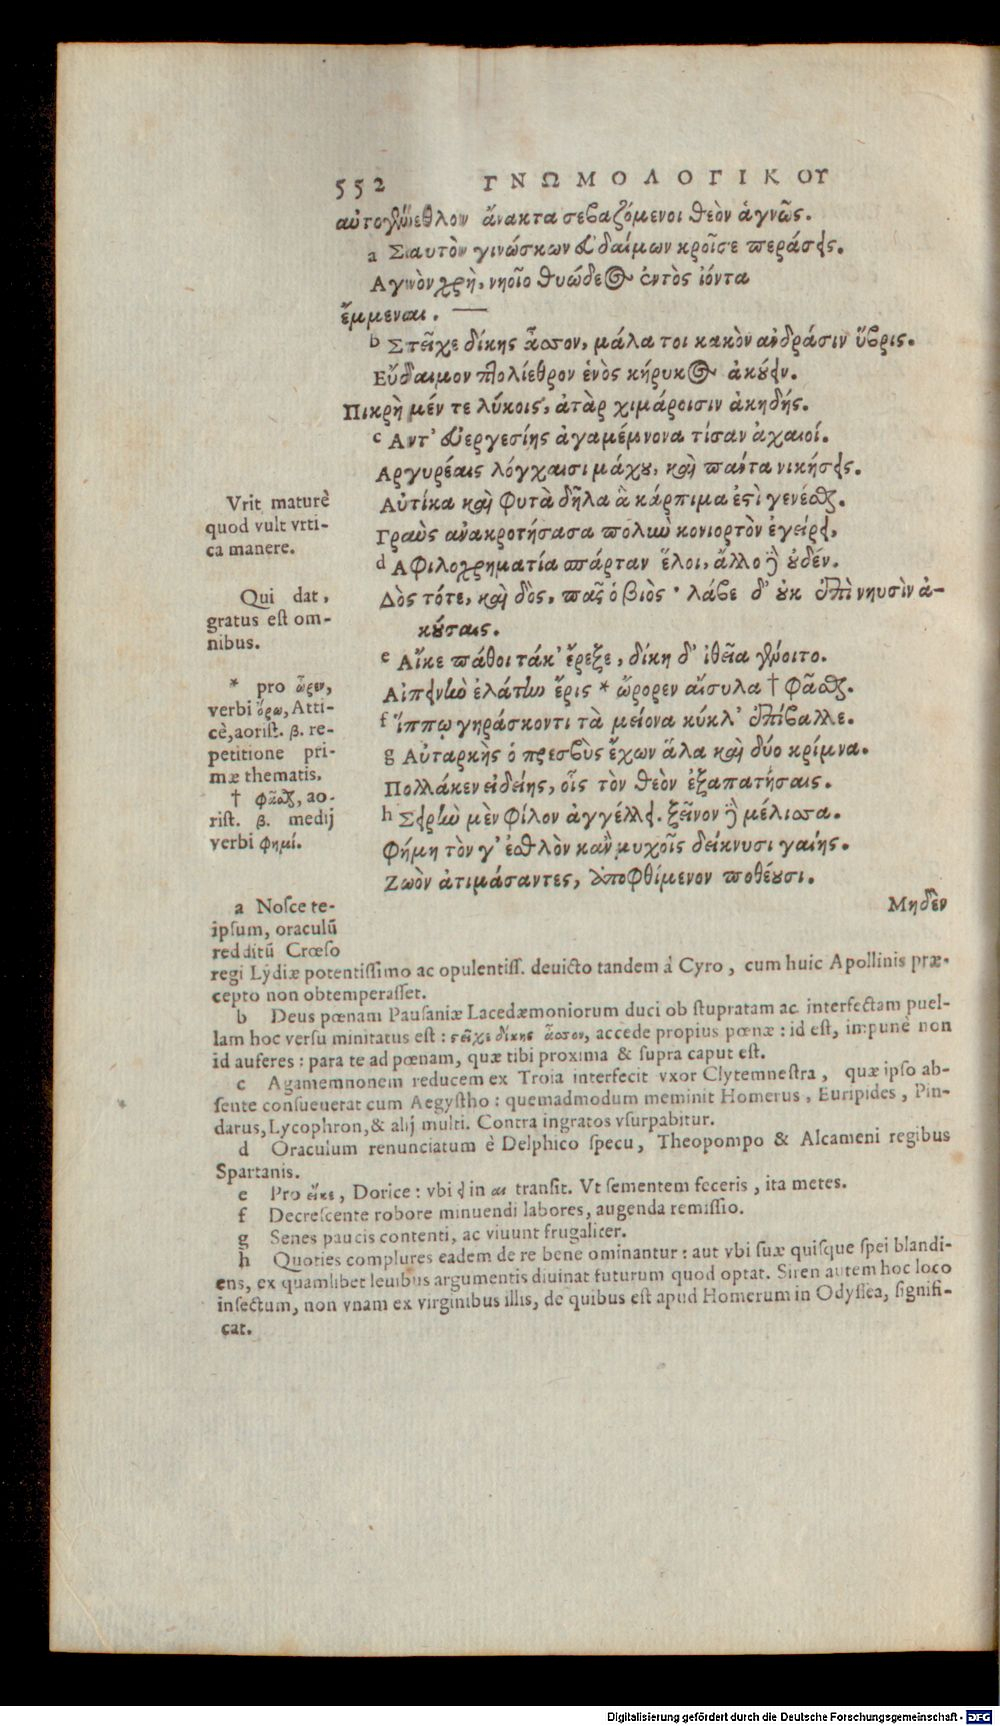 552 ΓΝΩΜΟΛΟΓΙΚΟΥ
αὐτογένεθλον ἄνακτα σεβαζόμενοι θεὸν ἁγνῶς.
a Σαυτὸν γινώσκων εὐδαίμων κροῖσε περάσεις.
Αγνὸν χρὴ, νηοῖο θυώδεος ἐντὸς ἰόντα
ἔμμεναι. —
b Στεῖχε δίκης ἆσσον, μάλα τοι κακὸν ἀνδράσιν ὕβρις.
Εὔδαιμον πτολίεθρον ἑνὸς κήρυκος ἀκούειν.
Πικρὴ μέν τε λύκοις, ἀτὰρ χιμάροισιν ἀκηδής.
c Αντ' εὐεργεσίης ἀγαμέμνονα τίσαν ἀχαιοί.
Αργυρέαις λόγχαισι μάχου, καὶ πάντα νικήσεις.
Αὐτίκα καὶ φυτὰ δῆλα ἃ κάρπιμα ἐστὶ γενέσθαι.
Γραῦς ἀνακροτήσασα πολὺν κονιορτὸν ἐγείρει,
d Α φιλοχρηματία σπάρταν ἕλοι, ἄλλο δὲ οὐδέν.
Δὸς τότε, καὶ δὸς, πᾶς ὁ βιὸς· λάβε δ' οὐκ ἐπὶ νηυσὶν ἀ-
κούσαις.
e Αἴκε πάθοι τάκ' ἔρεξε, δίκη δ' ἰθεῖα γένοιτο.
Αἰπεινὴν ἐλάτην ἔρις * ὤρορεν αἴσυλα † φᾶσθαι.
f ἵππῳ γηράσκοντι τὰ μείονα κύκλ' ἐπίβαλλε.
g Αὐταρκὴς ὁ πρεσβὺς ἔχων ἅλα καὶ δύο κρίμνα.
Πολλάκεν εἰδείης, οἷς τὸν θεὸν ἐξαπατήσαις.
h Σειρὴν μὲν φίλον ἀγγέλλει. ξεῖνον δὲ μέλισσα.
Φήμη τὸν γ' ἐσθλὸν κἂν μυχοῖς δείκνυσι γαίης.
Ζωὸν ἀτιμάσαντες, ἀποφθίμενον ποθέουσι.
Μηδὲν
Vrit maturè
quod vult vrti-
ca manere.
Qui dat,
gratus est om-
nibus.
* pro ὦρεν,
verbi ὄρω, Atti-
cè, aorist. β. re-
petitione pri-
mæ thematis.
† φᾶσθαι, ao-
rist. β. medij
verbi φημί.
a Nosce te-
ipsum, oraculū
redditū Crœso
regi Lydiæ potentissimo ac opulentiss. deuicto tandem à Cyro, cum huic Apollinis præ-
cepto non obtemperasset.
b Deus pœnam Pausaniæ Lacedæmoniorum duci ob stupratam ac interfectam puel-
lam hoc versu minitatus est: στεῖχε δίκης ἆσσον, accede propius pœnæ: id est, impunè non
id auferes: para te ad pœnam, quæ tibi proxima & supra caput est.
c Agamemnonem reducem ex Troia interfecit vxor Clytemnestra, quæ ipso ab-
sente consueuerat cum Aegystho: quemadmodum meminit Homerus, Euripides, Pin-
darus, Lycophron, & alij multi. Contra ingratos vsurpabitur.
d Oraculum renunciatum è Delphico specu, Theopompo & Alcameni regibus
Spartanis.
e Pro εἴκε, Dorice: vbi ει in αι transit. Vt sementem feceris, ita metes.
f Decrescente robore minuendi labores, augenda remissio.
g Senes paucis contenti, ac viuunt frugaliter.
h Quoties complures eadem de re bene ominantur: aut vbi suæ quisque spei blandi-
ens, ex quamlibet leuibus argumentis diuinat futurum quod optat. Siren autem hoc loco
insectum, non vnam ex virginibus illis, de quibus est apud Homerum in Odyssea, signifi-
cat.
Digitalisierung gefördert durch die Deutsche Forschungsgemeinschaft - DFG